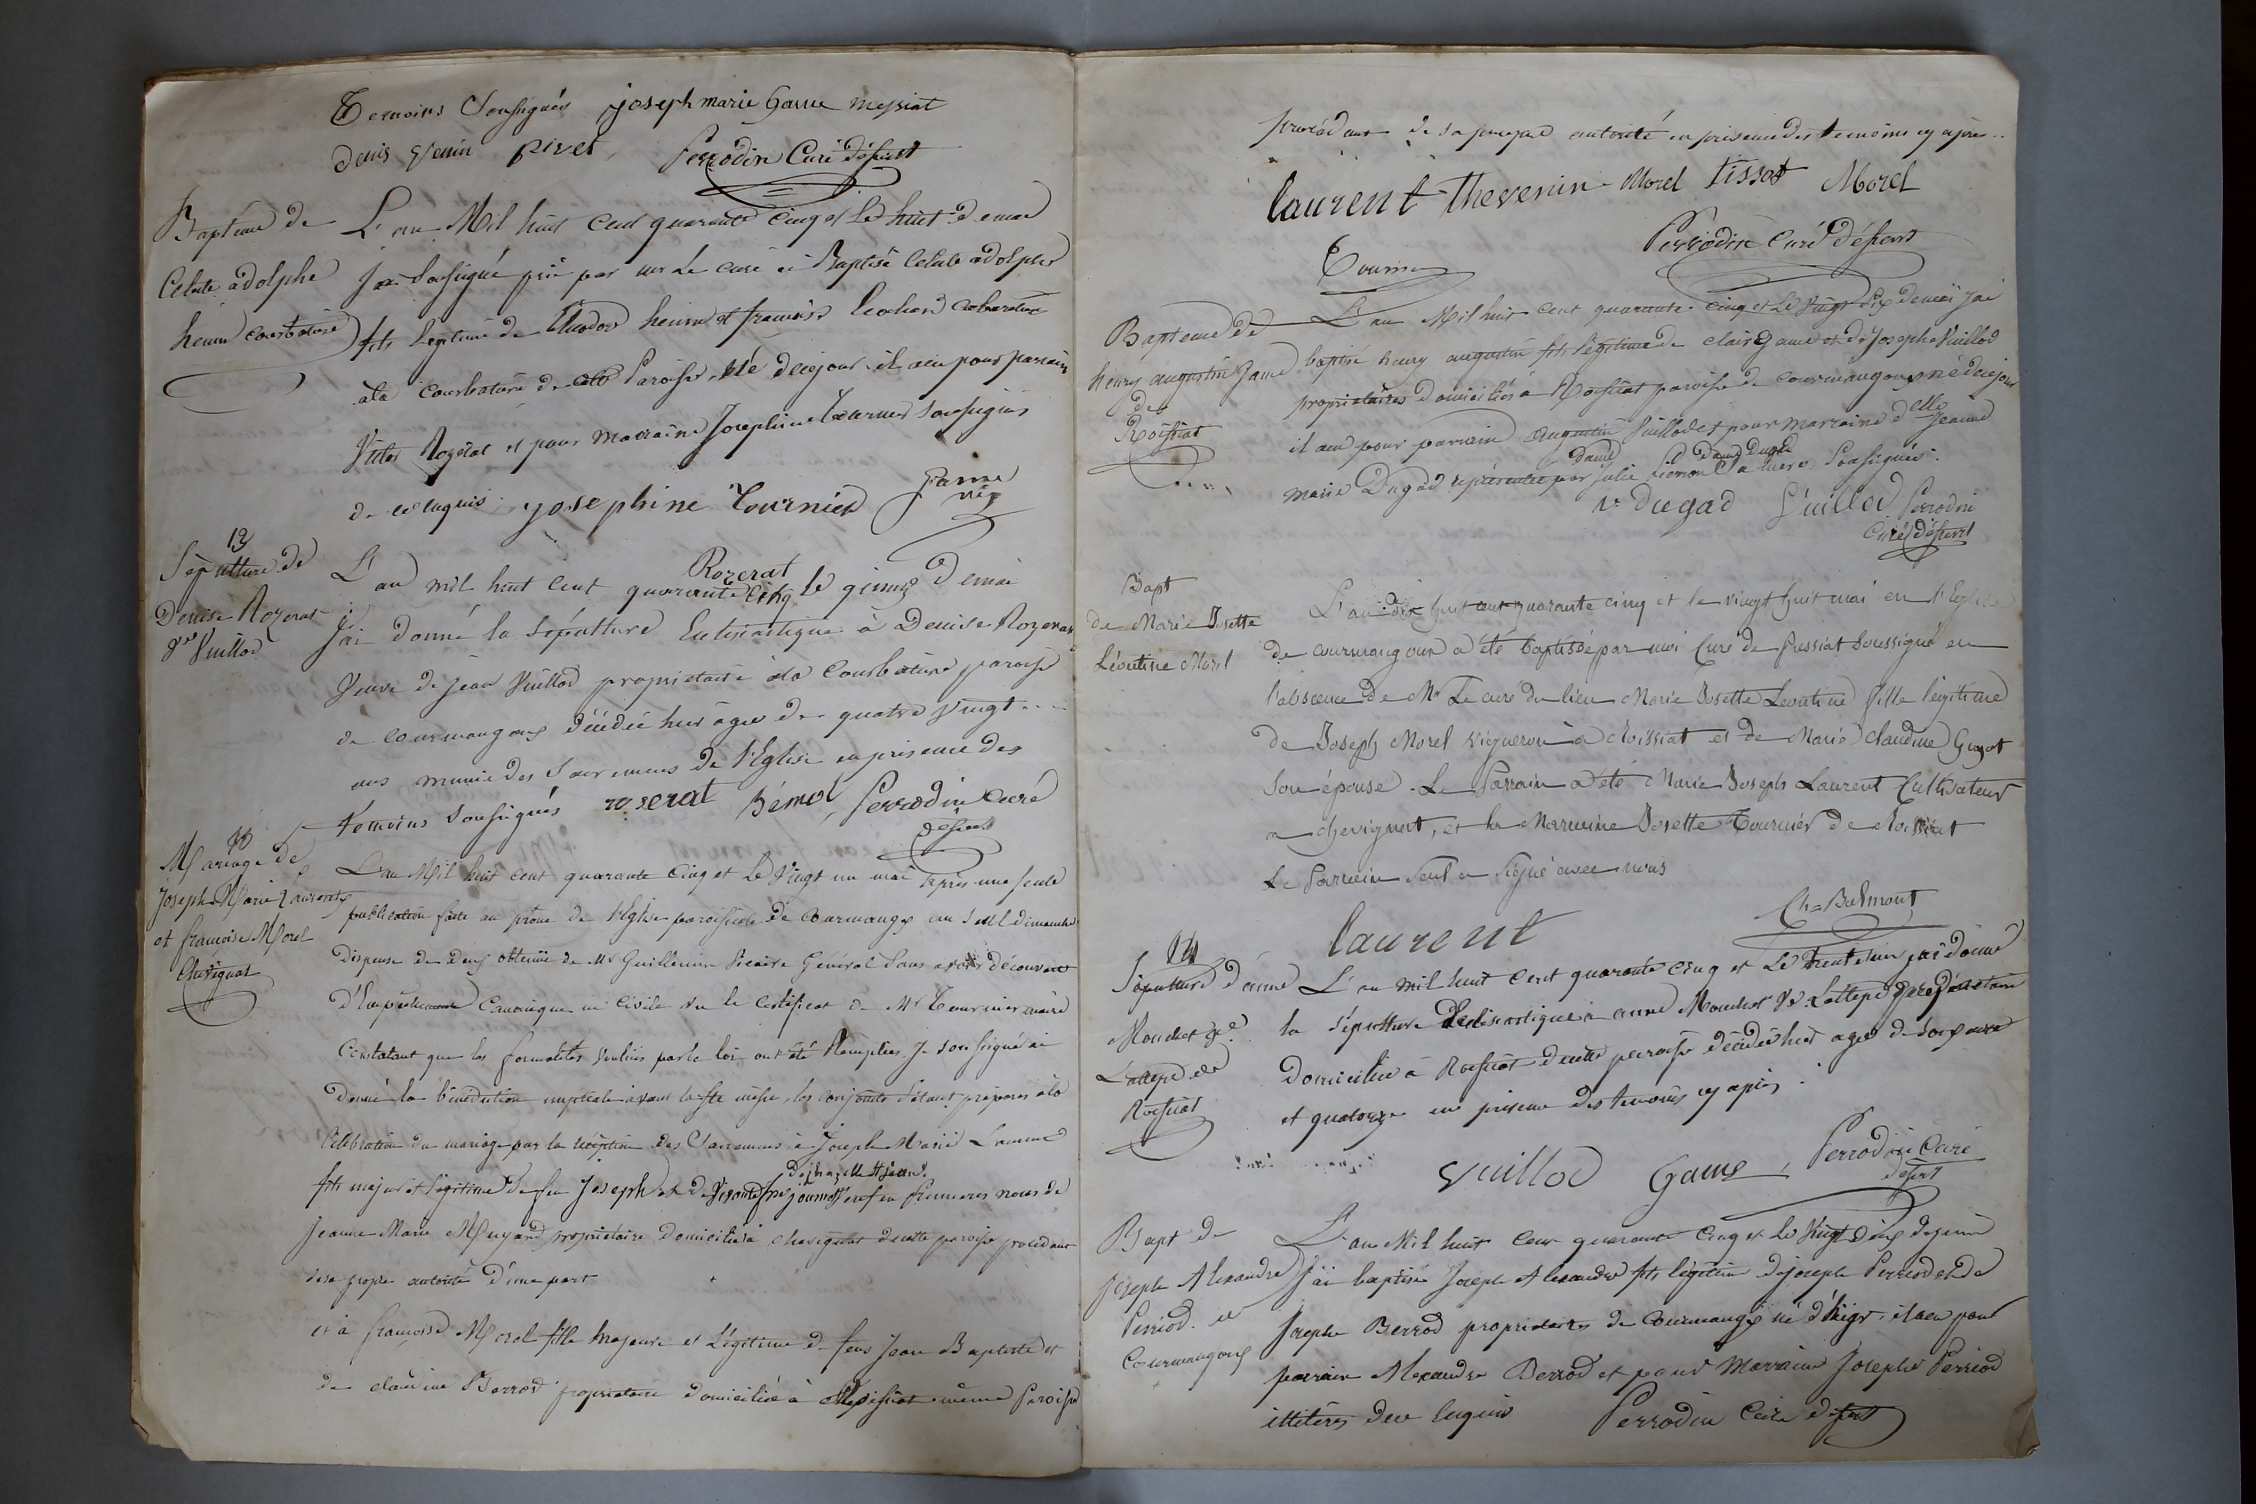 Temoins Soussignés joseph marie Game messiat
Denis venin pivet Perrodin Curé déssert
Baptême de
Celeste adolphe
henin courbature
L'an Mil huit cent quarante cinq et le huit de mai
J'ai Soussigné prié par mr Le curé ai Baptisé Celeste adolphe
fils légitime de théodore henin et francoise
à la Courbature de cette Paroisse né de ce jour il a eu pour parrain
Victor Rozerat et pour marraine Josephine tournier soussignés
de ce requis josephine tournier Game
13
Sépulture de
Denise Rozerat
Ve Vuillod
L'an mil huit cent quarante cinq le quinze de mai
Rozerat
J'ai donné la sépulture Eclesiastique à Denise Rozerat
Veuve de jean Vuillod propriétaire à la Courbature paroisse
de courmangoux décédée hier agée de quatre vingt
ans munie des Sacremens de l'Eglise en présence des
témoins soussignés roserat Bémol Perrodin curé
déssert
Mariage de
Joseph Marie Laurent
et francoise Morel
Chevignat
L'an Mil huit cent quarante cinq et Le Vingt un mai après une seule
publication faite au prône de l'Eglise paroissiale de Courmangx un seul dimanche
Dispense de deux obtenue de Mr Guillemin Vicaire Général sans avoir découvert
d'Empêchement Canonique ni Civile vu le certificat de Mr Tournier maire
Constatant que les formalités voulues par la loi ont été Remplies Je soussigné ai
Donné la bénédiction nuptiale avant la Ste messe, les conjoints s'étant préparés à la
Célébration du mariage par la réception des Sacremens à Joseph Marie Laurent
fils majeur et légitime de feu Joseph et de
Jeanne Marie Muyard propriétaire domicilié à chevignat de cette paroisse procédant
de sa propre autorité d'une part
et à francoise Morel fille majeure et Légitime de feu Jean Baptiste et
de claudine Berrod propriétaire domiciliée à Roissiat même Paroisse
procédant de sa propre autorité en présence des témoins cy après
laurent Thevenin Morel tissot Morel
Tournier Perrodin Curé déssert
Bapteme de
henry augustin Game
de
Roissiat
L'an Mil huit cent quarante cinq et Le Vingt six de mai J'ai
baptisé henry augustin fils légitime de clair Game et de Josephe Vuillod
propriétaires domiciliés à Roissiat paroisse de courmangoux né de ce jour
il a eu pour parrain Augustin Vuillod et pour marraine delle Jeanne
marie Dugad représentée par dame julie dame Dugad sa mère Soussignés
ve dugad Vuillod Perrodin
Curé déssert
Bapt
de Marie Josette
Léontine Morel
L'an dix huit cent quarante cinq et le vingt huit mai en l'Eglise
de courmangoux a été baptisée par moi Curé de Pressiat soussigné en
l'abscence de Mr Le curé du lieu Marie Josette Leontine fille légitime
de Joseph Morel vigneron à Roissiat et de Marie claudine Guyot
son épouse. Le Parrain a été Marie Joseph Laurent Cultivateur
a chevignat, et la Marraine Josette Tournier de Roissiat
Le Parrain seul a signé avec nous
laurent Ch. Belmont
14
Sépulture d'anne
Mouchet Ve
Lattepe de
Roissiat
L'an mil huit cent quarante cinq et Le trente juin j'ai donné
la sépulture Eclésiastique à anne Mouchet Ve Lattepe propriétaire
domiciliée à Roissiat de cette paroisse décédée hier agée de soixante
et quatorze en présence des témoins cy après
Vuillod Game Perrodin Curé
déssert
Bapt de
Joseph Alexandre
Perriod de
Courmangoux
L'an Mil huit cent quarante cinq et Le Vingt deux de juin
J'ai baptisé Joseph Alexandre fils légitime de joseph Perriod et de
Josephe Berrod propriétaires de Courmangx né d'hier, il a eu pour
parrain Alexandre Berrod et pour Marraine Josephe Perriod
illitérés de ce requis Perrodin Curé déssert